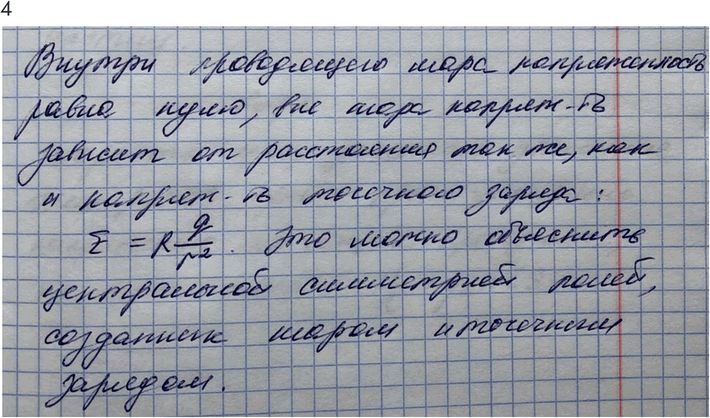 4
Внутри проводящего шара напряженность
равна нулю, вне шара напряж-ть
зависит от расстояния так же, как
и напряж-ть точечного заряда:
E = k q/r². Это можно объяснить
центральной симметрией полей,
созданных шаром и точечным
зарядом.